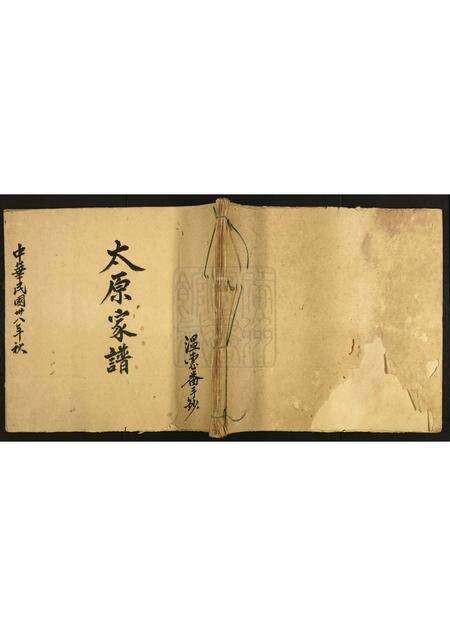 中華民國卅八年秋
太原家譜
溫惠番手鈔